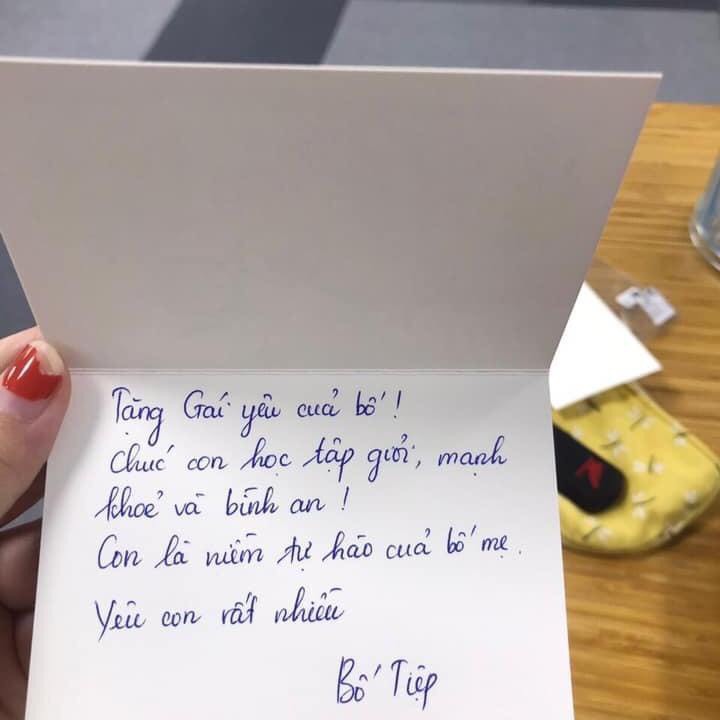 Tặng Gái yêu của bố!
Chúc con học tập giỏi, mạnh
khoẻ và bình an!
Con là niềm tự hào của bố mẹ.
Yêu con rất nhiều
Bố Tiệp